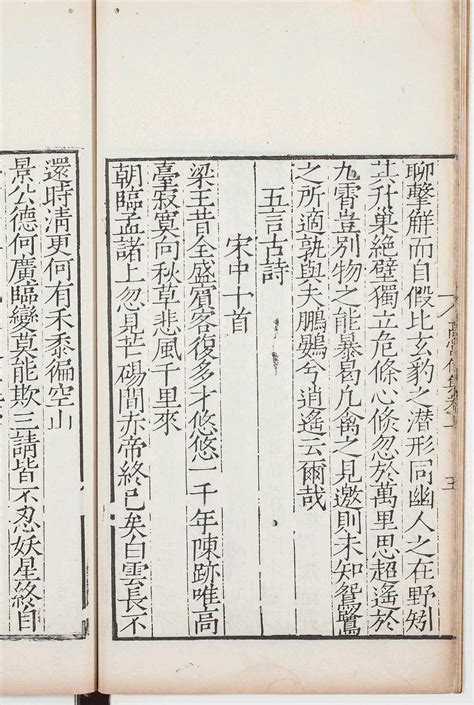 高常侍集卷一 五
聊擊鮮而自假比玄豹之潛形同幽人之在野矧
其升巢絕壁獨立危條心倏忽於萬里思超遙於
九霄豈別物之能暴曷凡禽之見邀則未知鴛鷺
之所適孰與夫鵬鷃兮逍遙云爾哉
五言古詩
宋中十首
梁王昔全盛賓客復多才悠悠一千年陳跡唯高
臺寂寞向秋草悲風千里來
朝臨孟諸上忽見芒碭間赤帝終已矣白雲長不
還時清更何有禾黍徧空山
景公德何廣臨變莫能欺三請皆不忍妖星終自